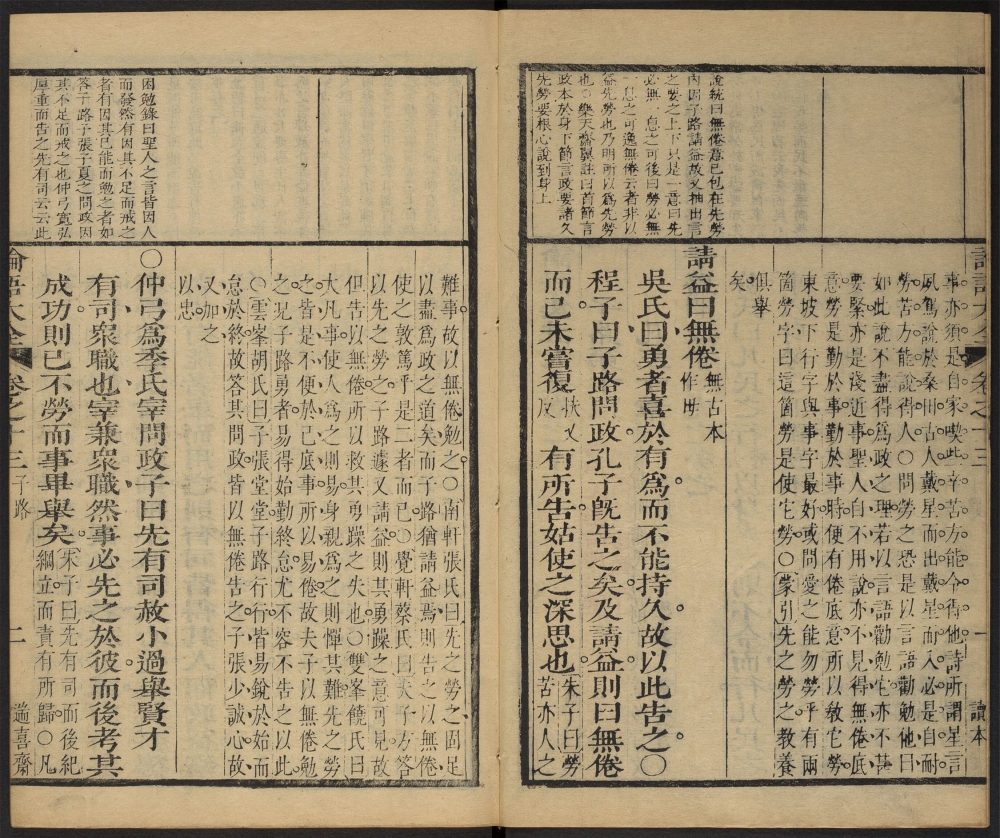 說統曰無倦意已包在先勞
內因子路請益故又抽出言
之要之上下只是一意曰先
必無一息之可後曰勞必無
一息之可逸無倦云者非以
益先勞也乃明所以爲先勞
也○樂天齋翼註曰首節言
政本於身下節言政要諸久
先勞要根心說到身上
事亦須是自家喫此辛苦方能令得他詩所謂星言
夙駕說於桑田古人戴星而出戴星而入必是自耐
勞苦方能說得人○問勞之恐是以言語勸勉他曰
如此說不盡得爲政之理若以言語勸勉它亦不甚
要緊亦是淺近事聖人自不用說亦不見得無倦底
意勞是勤於事勤於事時便有倦底意所以敎它勞
東坡下行字與事字最好或問愛之能勿勞乎有兩
箇勞字曰這箇勞是使它勞○蒙引先之勞之敎養
俱舉
矣
請益曰無倦 無古本作毋
吳氏曰勇者喜於有爲而不能持久故以此告之○
程子曰子路問政孔子旣告之矣及請益則曰無倦
而已未嘗復 扶又反 有所告姑使之深思也 朱子曰勞苦亦人之
讀本
困勉錄曰聖人之言皆因人
而發然有因其不足而戒之
者有因其已能而勉之者如
答子路子張子夏之問政因
其不足而戒之也仲弓寬弘
厚重而告之先有司云云此
難事故以無倦勉之○南軒張氏曰先之勞之固足
以盡爲政之道矣而子路猶請益焉則告之以無倦
使之敦篤乎是二者而已○覺軒蔡氏曰夫子方答
以先之勞之子路遽又請益則其勇躁之意可見故
但告以無倦所以救其勇躁之失也○雙峯饒氏曰
大凡事使人爲之則易身親爲之則憚其難先之勞
之皆是不便於己底事所以易倦故夫子以無倦勉
之况子路勇者易得始勤終怠尤不容不告之以此
○雲峯胡氏曰子張堂堂子路行行皆易銳於始而
怠於終故答其問政皆以無倦告之子張少誠心故
又加之
以忠
○仲弓爲季氏宰問政子曰先有司赦小過舉賢才
有司衆職也宰兼衆職然事必先之於彼而後考其
成功則已不勞而事畢舉矣 朱子曰先有司而後紀綱立而責有所歸○凡
論語大全 卷之十三 子路 二 遄喜齋